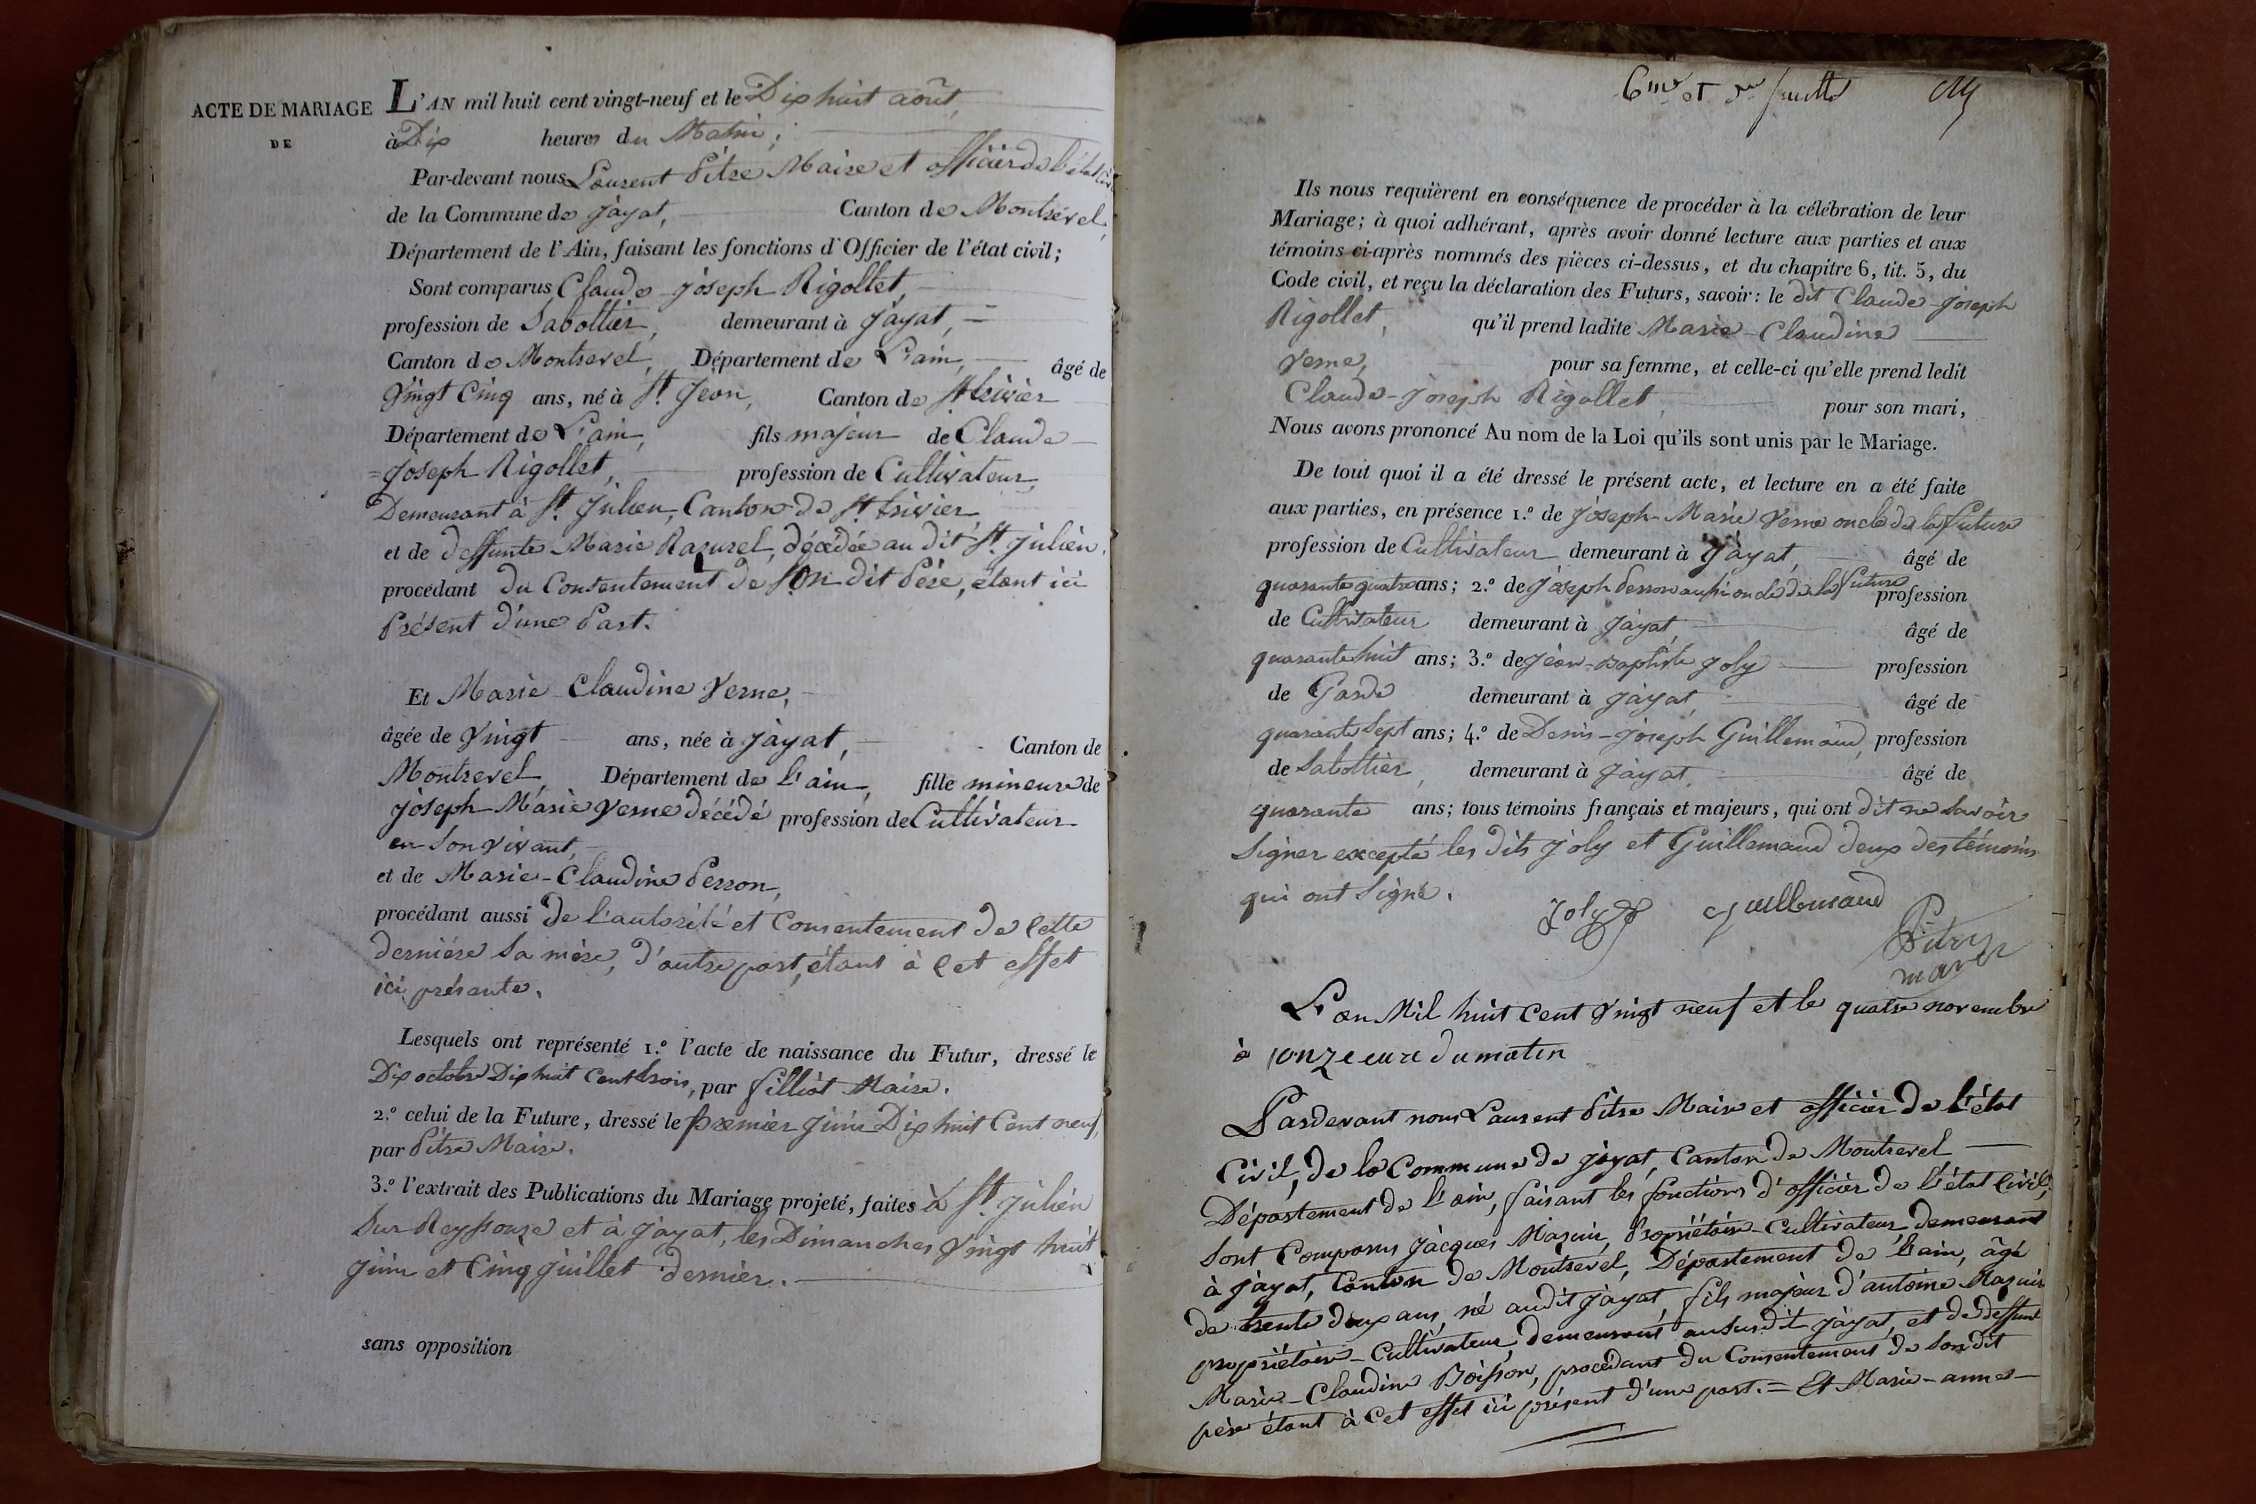 ACTE DE MARIAGE
DE
L'AN mil huit cent vingt-neuf et le Dix huit août,
à Dix heures du Matin;
Par-devant nous Laurent Pitre Maire et officier de l'état civ
de la Commune de jàyat, Canton de Montrevel,
Département de l'Ain, faisant les fonctions d'Officier de l'état civil;
Sont comparus Claude-joseph Rigollet,
profession de Sabottier, demeurant à jàyat, =
Canton de Montrevel, Département de L'ain, âgé de
Vingt Cinq ans, né à St. Jean, Canton de St trivier
Département de L'ain, fils majeur de Claude
=joseph Rigollet, profession de Cultivateur,
Demeurant à St. julien, Canton de St. trivier
et de deffunte Marie Razurel, décédée au dit St. julien,
procédant du Consentement de son dit Père, étant ici
Présent d'une Part.
Et Marie-Claudine Verne,
âgée de Vingt ans, née à jàyat, Canton de
Montrevel, Département de L'ain, fille mineure de
joseph-Marie Verne décédé profession de Cultivateur
en son vivant,
et de Marie-Claudine Perron,
procédant aussi de l'autorité et Consentement de Cette
dernière sa mère, d'autre part, étant à cet effet
ici présente.
Lesquels ont représenté 1.º l'acte de naissance du Futur, dressé le
Dix octobre Dix huit Cent trois, par filliot Maire.
2.º celui de la Future, dressé le premier juin Dix huit Cent neuf,
par Pitre Maire.
3.º l'extrait des Publications du Mariage projeté, faites à St. julien
Sur Reyssouze et à jàyat, les Dimanches Vingt huit
juin et Cinq juillet dernier.
sans opposition
6me et feuille
Ils nous requièrent en conséquence de procéder à la célébration de leur
Mariage; à quoi adhérant, après avoir donné lecture aux parties et aux
témoins ci-après nommés des pièces ci-dessus, et du chapitre 6, tit. 5, du
Code civil, et reçu la déclaration des Futurs, savoir: le dit Claude-joseph
Rigollet, qu'il prend ladite Marie-Claudine
Verne, pour sa femme, et celle-ci qu'elle prend ledit
Claude-joseph Rigollet, pour son mari,
Nous avons prononcé Au nom de la Loi qu'ils sont unis par le Mariage.
De tout quoi il a été dressé le présent acte, et lecture en a été faite
aux parties, en présence 1.º de joseph-Marie Verne oncle de la future
profession de Cultivateur demeurant à jàyat, âgé de
quarante quatre ans; 2.º de joseph Perron aussi oncle de la future profession
de Cultivateur demeurant à jàyat, âgé de
quarante huit ans; 3.º de jean-Baptiste joly profession
de Garde demeurant à jàyat, âgé de
quarante Sept ans; 4.º de Denis-joseph Guillemaud, profession
de Sabottier, demeurant à jàyat, âgé de
quarante ans; tous témoins français et majeurs, qui ont dit ne Savoir
Signer excepté les dits joly et Guillemaud deux des témoins
qui ont Signé.
joly guillemaud
Pitre
maire
L'an Mil huit Cent Vingt neuf et le quatre novembre
à onze eure du matin
Pardevant nous Laurent Pitre Maire et officier de l'état
Civil, de la Commune de jàyat, Canton de Montrevel
Département de l'ain, faisant les fonctions d'officier de l'état Civil;
Sont Comparus jacques Mazuir, Propriétaire-Cultivateur, demeurant
à jàyat, Canton de Montrevel, Département de l'ain, âgé
de trente deux ans, né audit jàyat, fils majeur d'antoine Mazuir
propriétaire-Cultivateur, demeurant au susdit jàyat, et de deffunte
Marie-Claudine Boisson, procédant du Consentement de son dit
père étant à Cet effet ici présent d'une part.= Et Marie-anne-